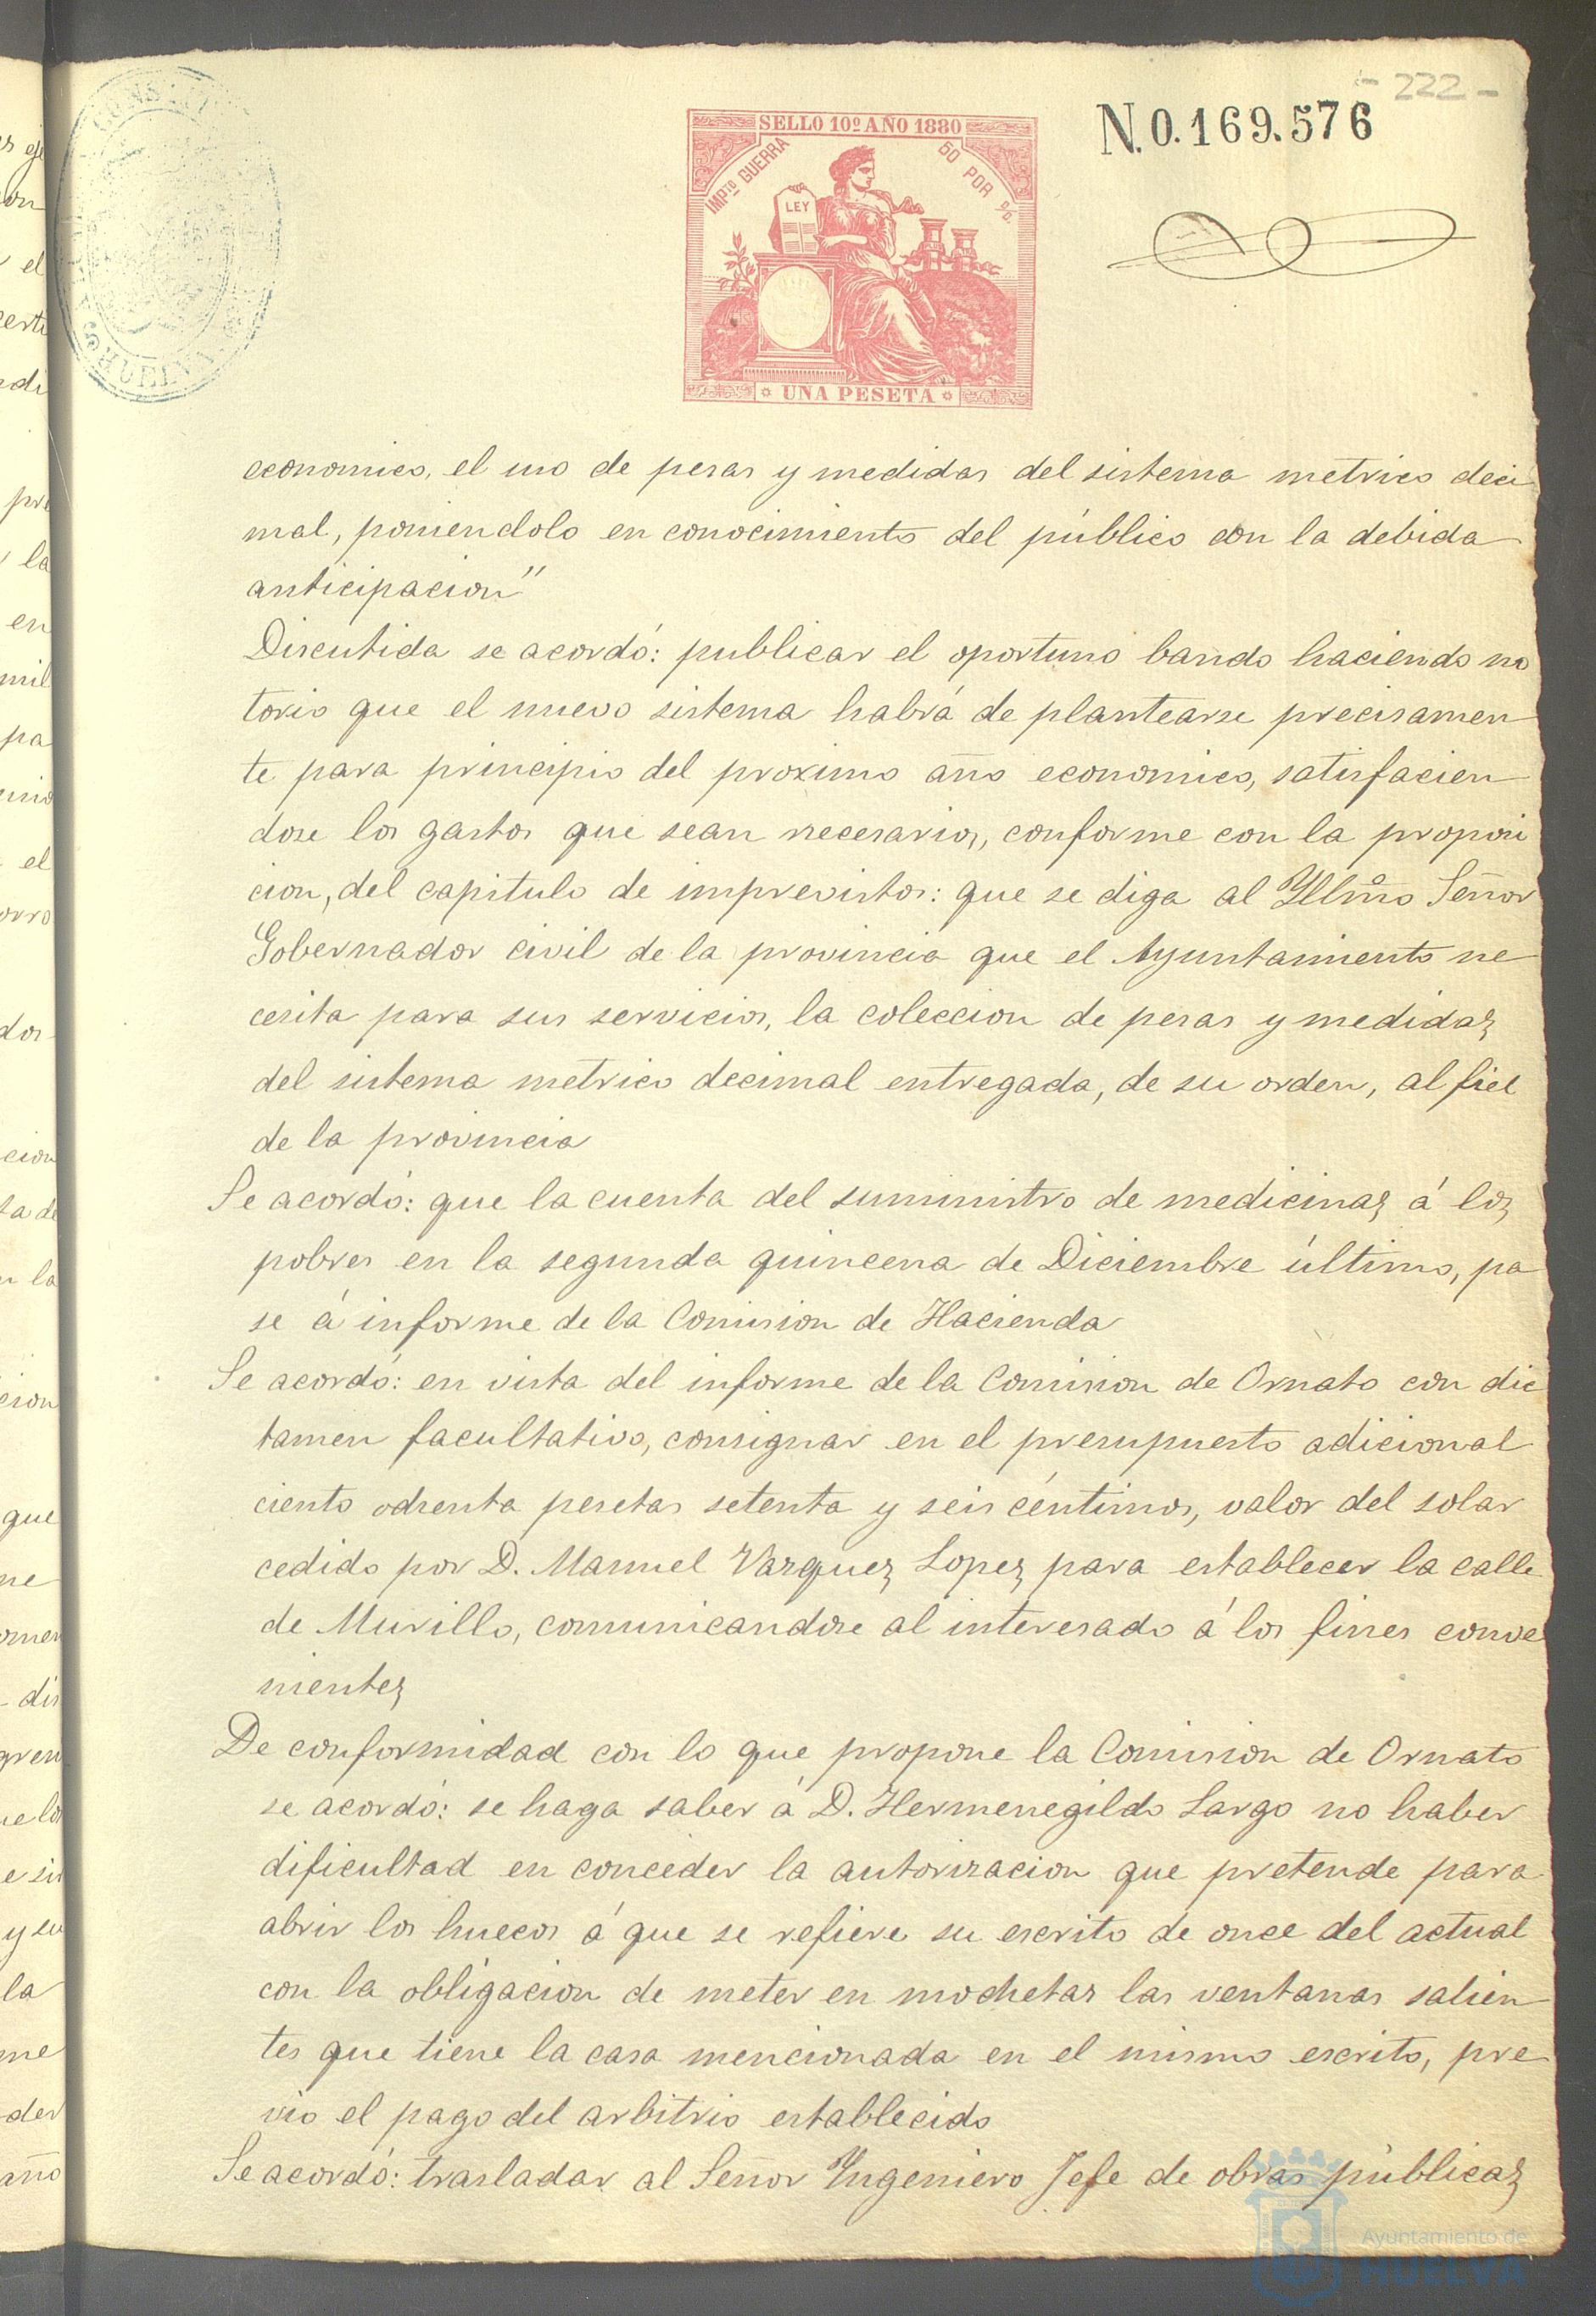 - 222 -
SELLO 10º AÑO 1880
N.0.169.576
IMPTO GUERRA
50 POR %
LEY
UNA PESETA
HUELVA
economico, el uso de pesas y medidas del sistema metrico deci
mal, poniendolo en conocimiento del público con la debida
anticipacion"
Discutida se acordó: publicar el oportuno bando haciendo no
torio que el nuevo sistema habrá de plantearse precisamen
te para principio del proximo año economico, satisfacien
dose los gastos que sean necesarios, conforme con la proposi
cion, del capitulo de imprevistos: que se diga al Yllmo Señor
Gobernador civil de la provincia que el Ayuntamiento ne
cesita para sus servicios, la coleccion de pesas y medidas
del sistema metrico decimal entregada, de su orden, al fiel
de la provincia
Se acordó: que la cuenta del suministro de medicinas á los
pobres en la segunda quincena de Diciembre último, pa
se á informe de la Comision de Hacienda
Se acordó: en vista del informe de la Comision de Ornato con dic
tamen facultativo, consignar en el presupuesto adicional
ciento ochenta pesetas setenta y seis céntimos, valor del solar
cedido por D. Manuel Vazquez Lopez para establecer la calle
de Murillo, comunicandose al interesado á los fines conve
nientes
De conformidad con lo que propone la Comision de Ornato
se acordó: se haga saber á D. Hermenegildo Largo no haber
dificultad en conceder la autorizacion que pretende para
abrir los huecos á que se refiere su escrito de once del actual
con la obligacion de meter en mochetas las ventanas salien
tes que tiene la casa mencionada en el mismo escrito, pre
vio el pago del arbitrio establecido
Se acordó: trasladar al Señor Yngeniero Jefe de obras públicas
Ayuntamiento de
HUELVA